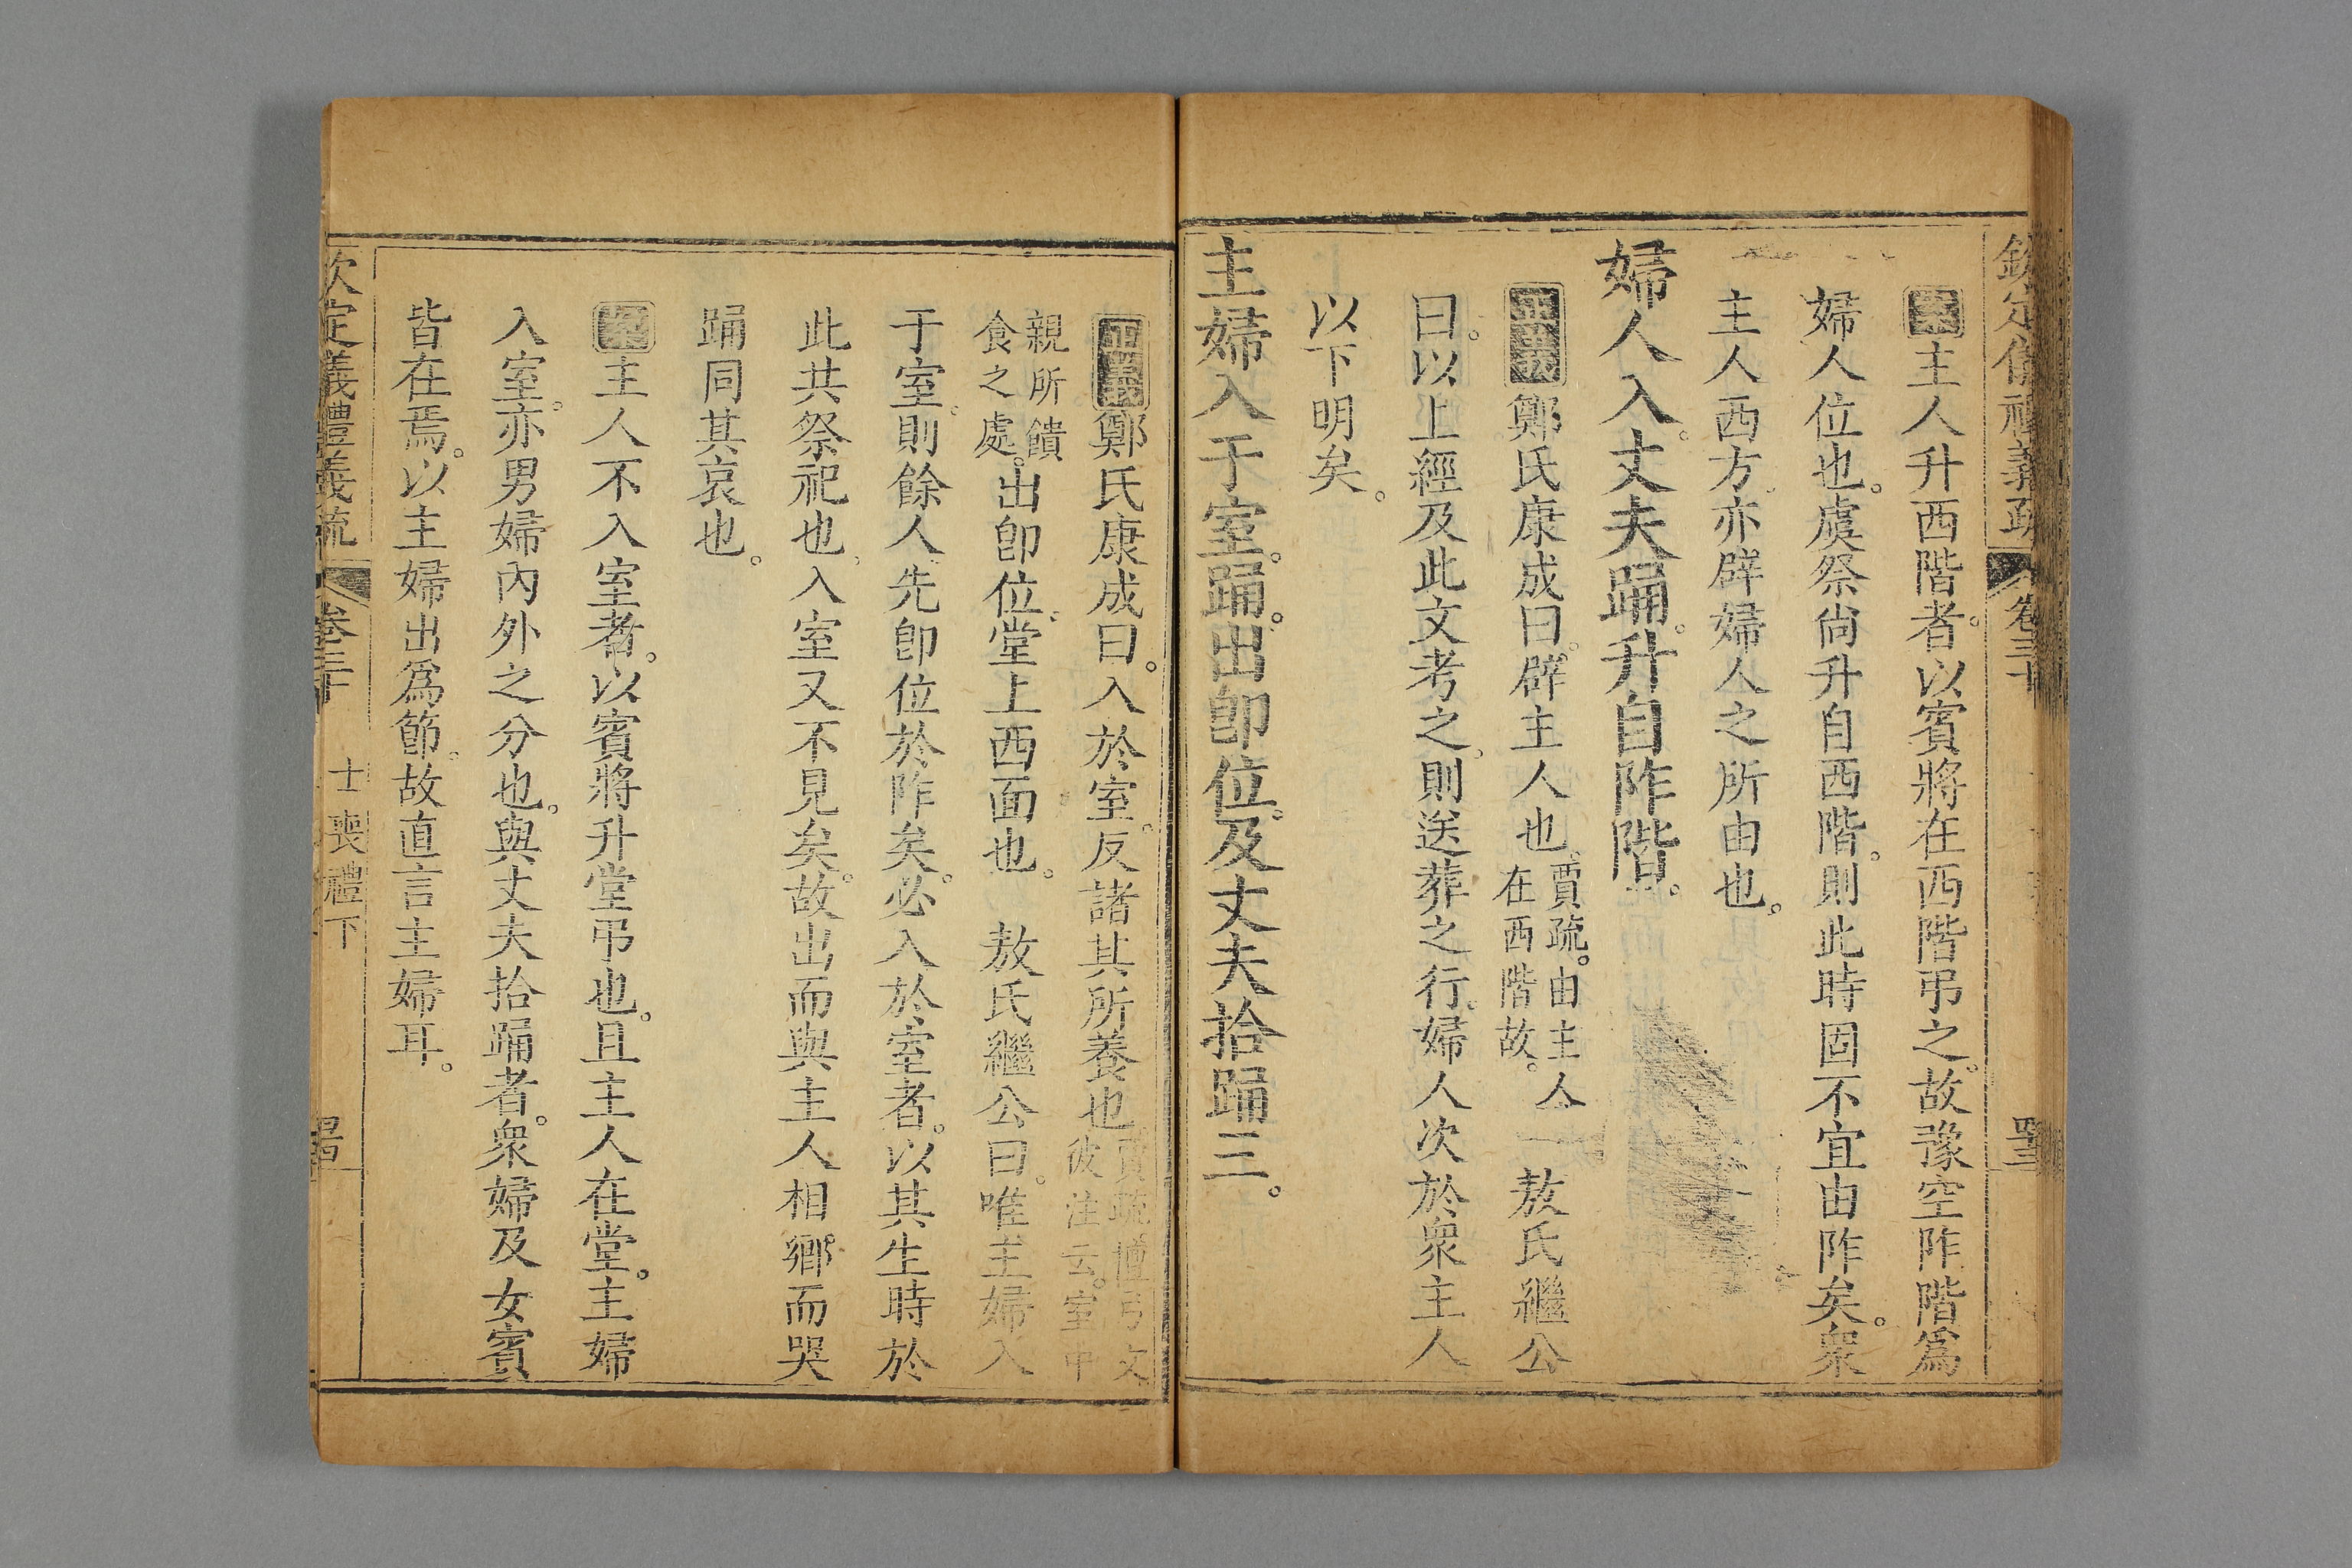 欽定儀禮義疏 卷三十
案主人升西階者。以賓將在西階弔之。故豫空阼階爲
婦人位也。虞祭尚升自西階。則此時固不宜由阼矣。衆
主人西方。亦辟婦人之所由也。
婦人入。丈夫踊。升自阼階。
正義鄭氏康成曰。辟主人也。賈疏。由主人在西階故。 敖氏繼公
曰。以上經及此文考之。則送葬之行。婦人次於衆主人
以下明矣。
主婦入于室。踊。出卽位。及丈夫拾踊三。
正義鄭氏康成曰。入於室。反諸其所養也。賈疏。檀弓文。彼注云。室中
親所饋食之處。出卽位。堂上西面也。 敖氏繼公曰。唯主婦入
于室。則餘人先卽位於阼矣。必入於室者。以其生時於
此共祭祀也。入室又不見矣。故出而與主人相鄉而哭
踊同其哀也。
案主人不入室者。以賓將升堂弔也。且主人在堂。主婦
入室。亦男婦內外之分也。與丈夫拾踊者。衆婦及女賓
皆在焉。以主婦出爲節。故直言主婦耳。
欽定儀禮義疏 卷三十 士喪禮下